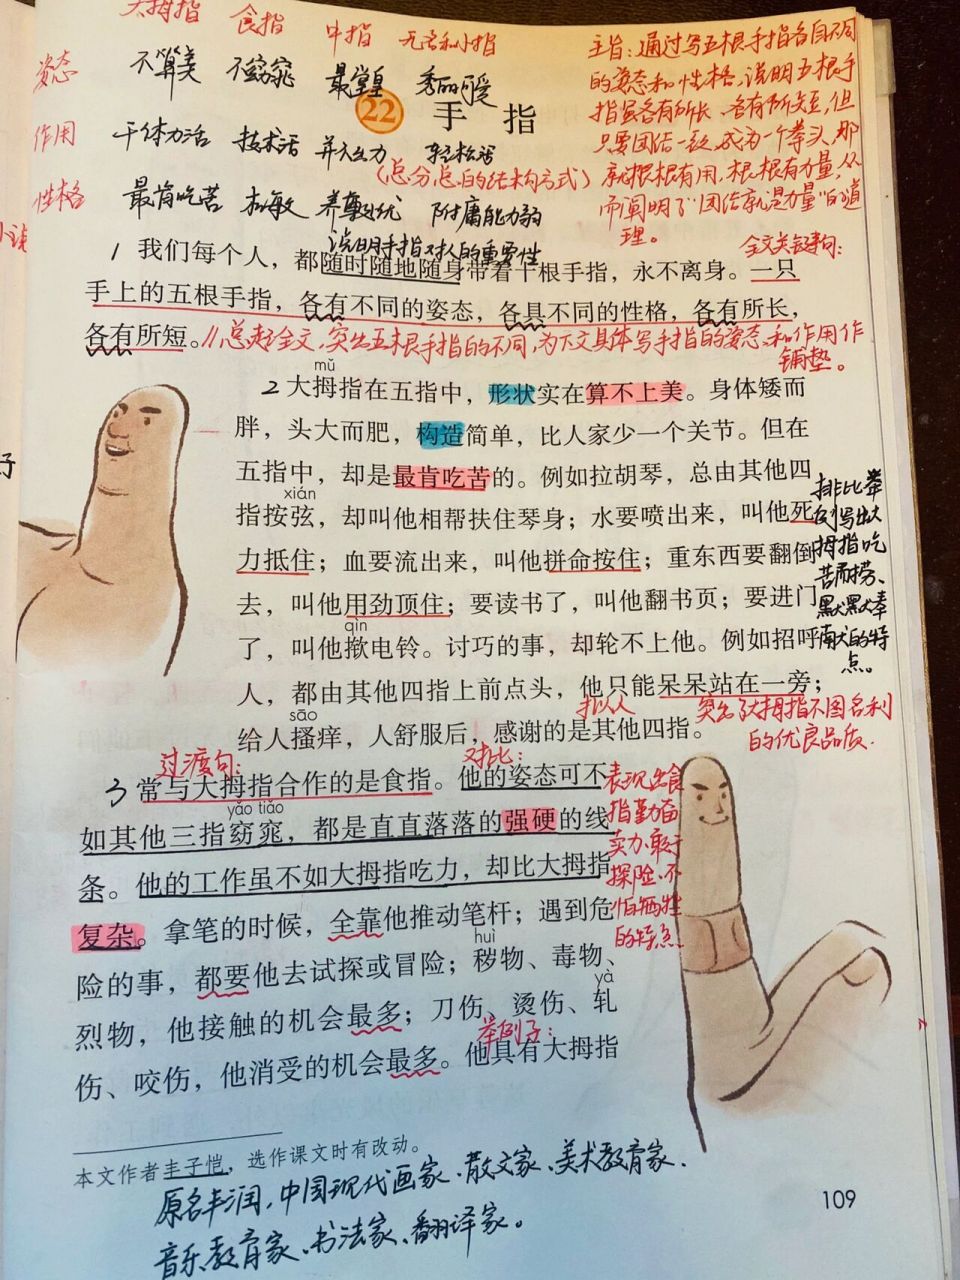 大拇指 食指 中指 无名和小指
姿态 不算美 不窈窕 最堂皇 秀丽可爱
作用 干体力活 技术活 并不出力 轻松活
性格 最肯吃苦 机敏 养尊处优 附庸能力弱
主旨:通过写五根手指各自不同
的姿态和性格,说明五根手
指虽各有所长、各有所短,但
只要团结一致,成为一个拳头,那
就根根有用,根根有力量,从
而阐明了“团结就是力量”的道
理。
22 手指
(总分总的结构方式)
说明手指对人的重要性
全文关键句:
1 我们每个人,都随时随地随身带着十根手指,永不离身。一只
手上的五根手指,各有不同的姿态,各具不同的性格,各有所长,
各有所短。//总起全文,突出五根手指的不同,为下文具体写手指的姿态和作用作
铺垫。
mǔ
2 大拇指在五指中,形状实在算不上美。身体矮而
胖,头大而肥,构造简单,比人家少一个关节。但在
五指中,却是最肯吃苦的。例如拉胡琴,总由其他四
xián
指按弦,却叫他相帮扶住琴身;水要喷出来,叫他死
力抵住;血要流出来,叫他拼命按住;重东西要翻倒
去,叫他用劲顶住;要读书了,叫他翻书页;要进门
qìn
了,叫他揿电铃。讨巧的事,却轮不上他。例如招呼
人,都由其他四指上前点头,他只能呆呆站在一旁;
sāo
给人搔痒,人舒服后,感谢的是其他四指。
排比举
例写出大
拇指吃
苦耐劳、
默默奉
献的特
点。
拟人
突出了大拇指不图名利
的优良品质.
过渡句:
对比:
3 常与大拇指合作的是食指。他的姿态可不
yǎo tiǎo
如其他三指窈窕,都是直直落落的强硬的线
条。他的工作虽不如大拇指吃力,却比大拇指
复杂。拿笔的时候,全靠他推动笔杆;遇到危
huì
险的事,都要他去试探或冒险;秽物、毒物、
yà
烈物,他接触的机会最多;刀伤、烫伤、轧
举例子:
伤、咬伤,他消受的机会最多。他具有大拇指
表现出食
指勤奋
卖力.敢于
探险.不
怕牺牲
的特点
本文作者丰子恺,选作课文时有改动。
原名丰润,中国现代画家、散文家、美术教育家、
音乐教育家、书法家、翻译家。
109